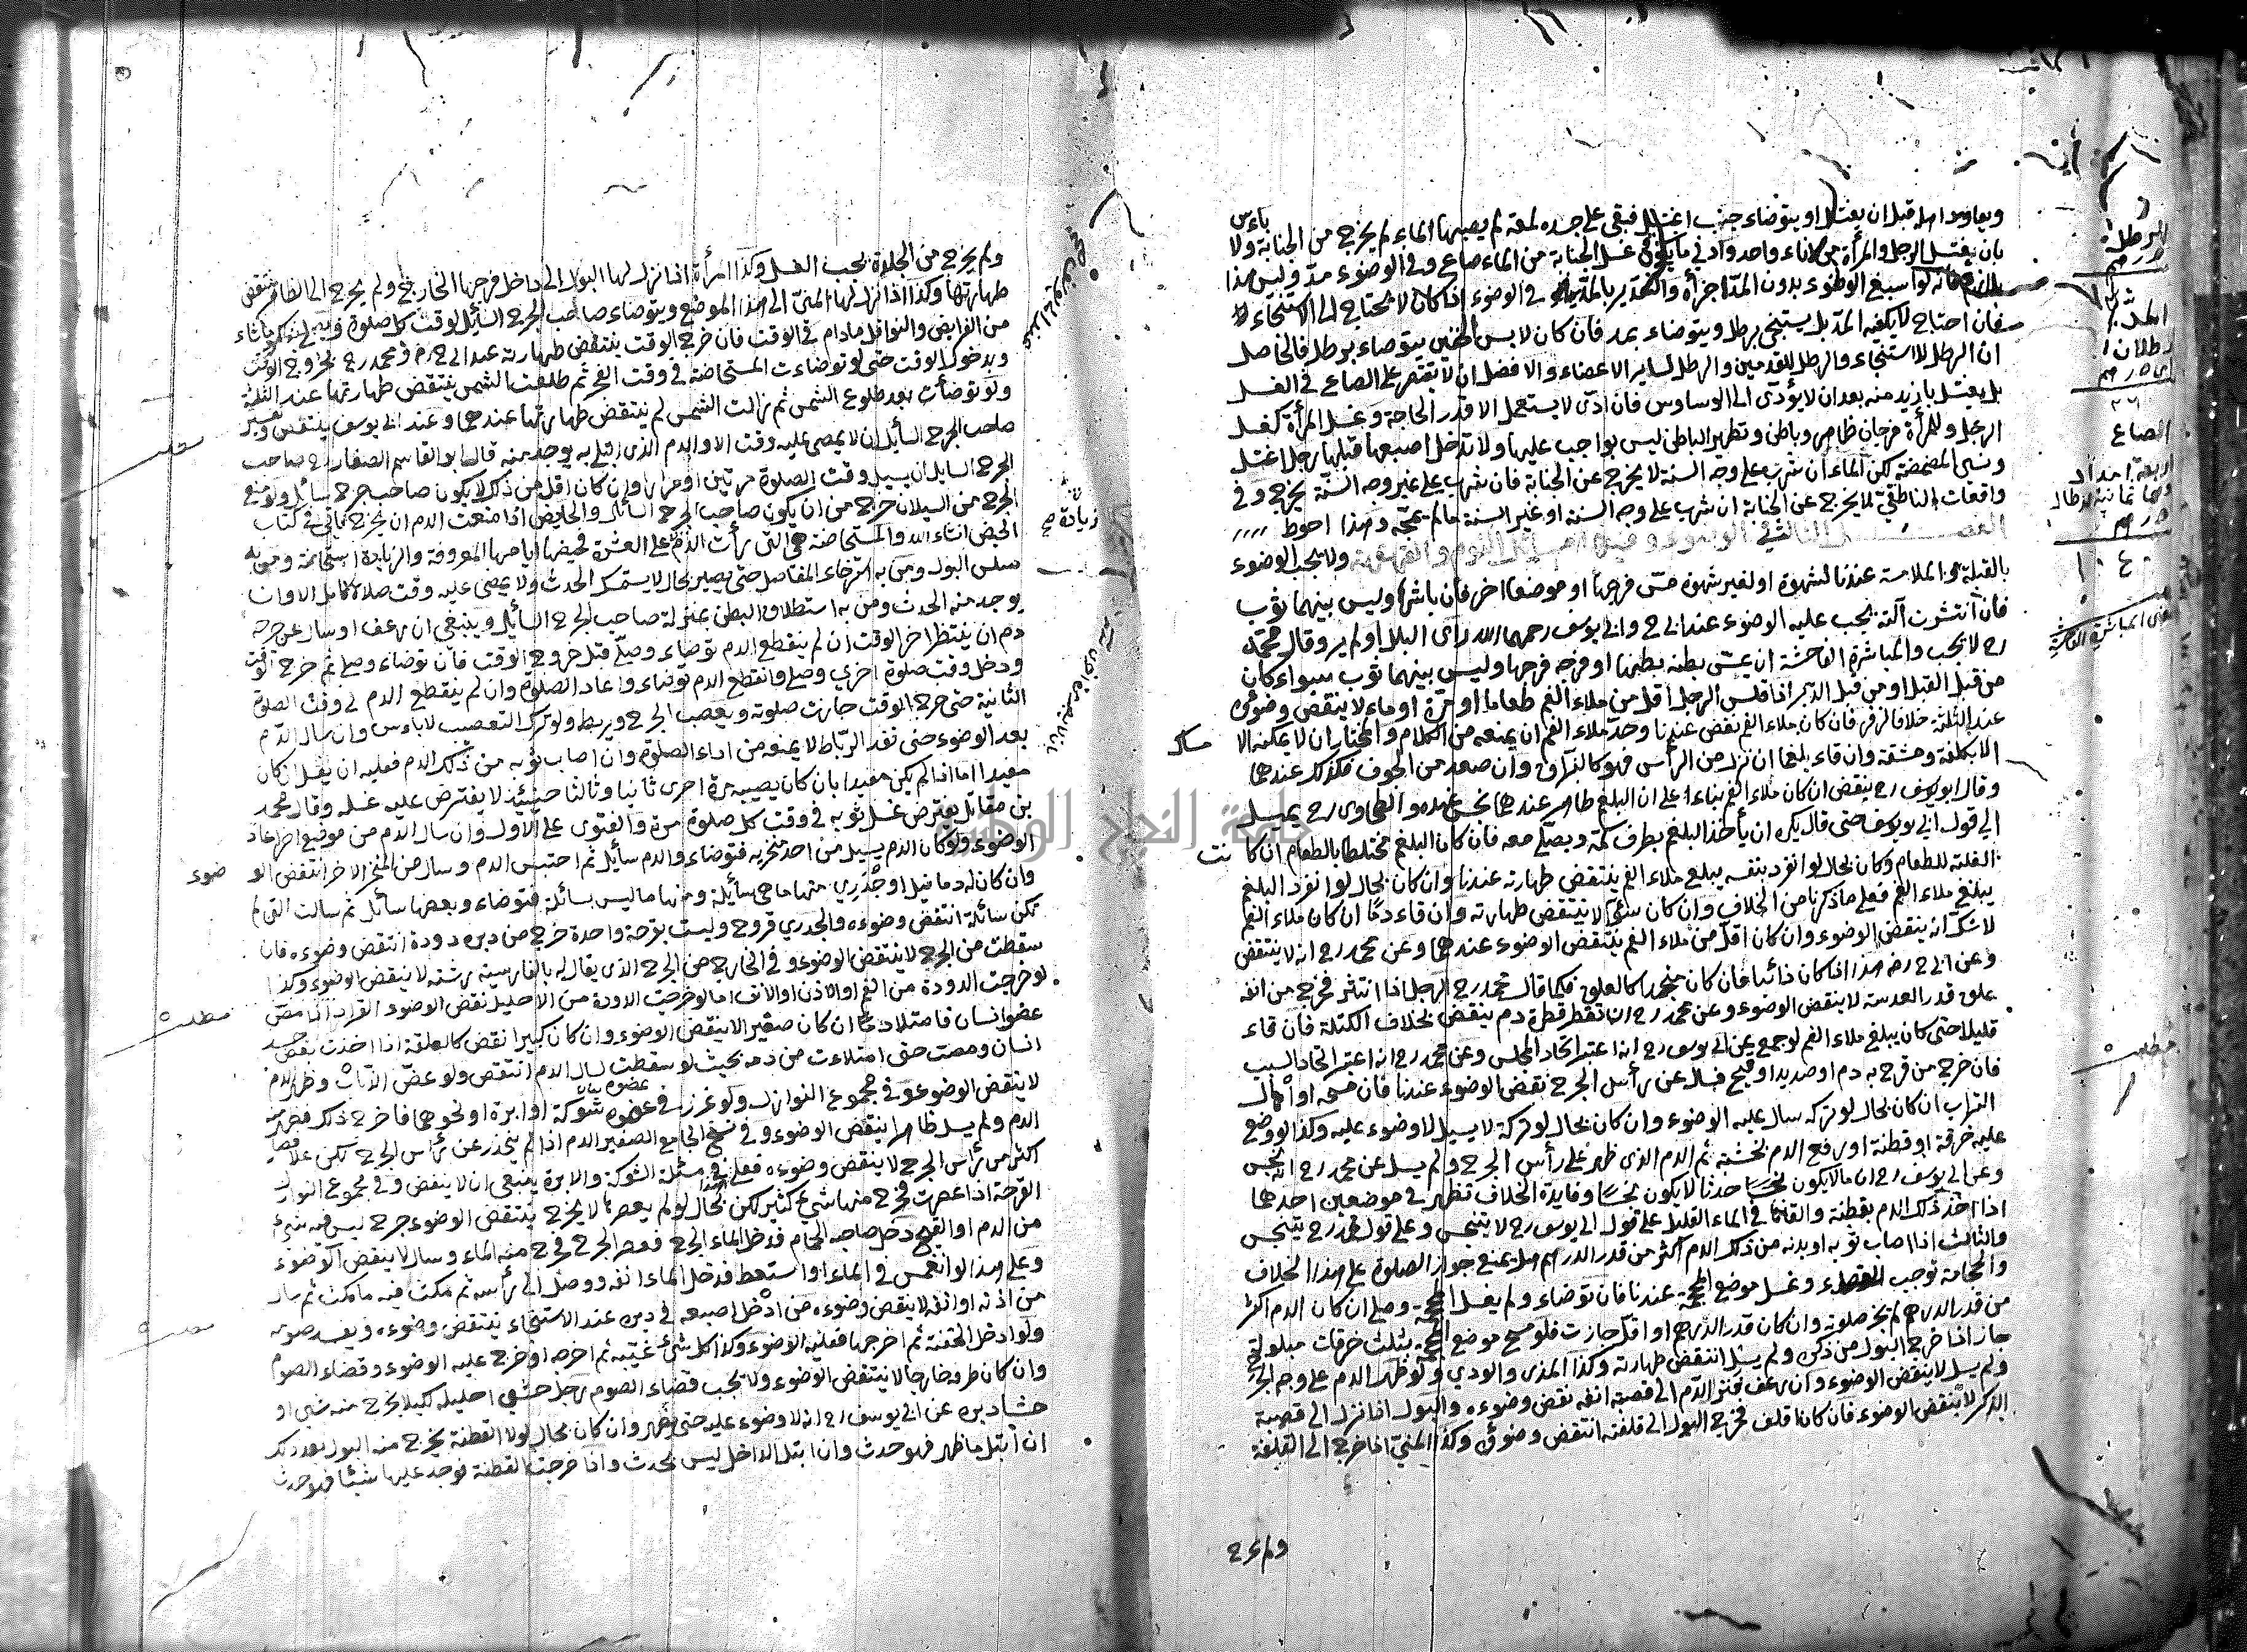 ويعاود اهله قبل ان يغتسل او يتوضاء جنب اغتسل فبقى على جسده لمعة لم يصبها الماء لم يخرج من الجنابة ولا باءس
بان يغتسل الرجل والمرأة من اناء واحد وادنى ما يكفى غسل الجنابة من الماء صاع وفى الوضوء مدّ وليس هذا
بلازم فانه لو اسبغ الوضوء بدون المدّ اجزأه والتقدير بالمدّ في الوضوء اذا كان لا يحتاج الى الاستنجاء
فان احتاج لا يكفيه المدّ بل يستنجي برطل ويتوضاء بمد فان كان لابس الخفين يتوضاء برطل فالحاصل
ان الرطل للاستنجاء والرطل للقدمين والرطل لساير الاعضاء والافضل ان لا يقتصر على الصاع في الغسل
بل يغتسل بازيد منه بعد ان لا يؤدّى الى الوساوس فان ادّى لا يستعمل الا قدر الحاجة وغسل المرأة كغسل
الرجل وللمرأة فرجان ظاهر وباطن وتطهير الباطن ليس بواجب عليها ولا تدخل اصبعها قبلها رجل اغتسل
ونسى المضمضة لكن الماء ان شرب على وجه السنة لا يخرج عن الجنابة فان شرب على غير وجه السنّة يخرج وفي
واقعات الناطفي لا يخرج عن الجنابة ان شرب على وجه السنة او غير السنة ما لم يمجّه وهذا احوط
الفصل الثالث في الوضوء وفيه مسائل النوم والقهقهة ولا يجب الوضوء
بالقبلة والملامسة عندنا لشهوة او لغير شهوة مسّ فرجها او موضعا اخر فان باشرها وليس بينهما ثوب
فان انتشرت آلته يجب عليه الوضوء عند ابى ح وابى يوسف رحمهما الله راى البلل او لم ير وقال محمّد
رح لا يجب والمباشرة الفاحشة ان يمسّ بطنه بطنها او فرجه فرجها وليس بينهما ثوب سواء كان
من قبل القبل او من قبل الدبر اذا قلس الرجل اقل من ملاء الفم طعاما او مرّة او ماء لا ينتقض وضوئه
عند الثلثة خلافا لزفر فان كان ملاء الفم نقض عندنا وحدّ ملاء الفم ان يمنعه من الكلام والمختار ان لا يمكنه الا
الا بكلفة ومشقة وان قاء بلغما ان نزل من الرأس فهو كالبزاق وان صعد من الجوف فكذلك عندهما
وقال ابو يوسف رح ينقض ان كان ملاء الفم بناء على ان البلغم طاهر عندهما نجس عنده والطحاوى رح يميل
الى قول ابى يوسف حتى قال يكره ان يأخذ البلغم بطرف كمّه ويصلّى معه فان كان البلغم مختلطا بالطعام ان كا نت
الغلبة للطعام وكان بحال لو انفرد بنفسه يبلغ ملاء الفم ينتقض طهارته عندنا وان كان بحال لو انفرد البلغم
يبلغ ملاء الفم فعلى ما ذكرنا من الخلاف وان كان سَوآء لا ينتقض طهارته وان قاء دمًا ان كان ملاء الفم
لا شكّ انه ينقض الوضوء وان كان اقلّ من ملاء الفم ينتقض الوضوء عندهما وعن محمد رح انه لا ينتقض
وعن ابى ح رض هذا اذا كان ذائبا فان كان منجمدا كالعلق فكما قال محمد رح الرجل اذا انتثر فخرج من انفه
علق قدر العدسة لا ينقض الوضوء وعن محمد رح ان تقطر قطرة دم ينتقض بخلاف الكتلة فان قاء
قليلا حتى كان يبلغ ملاء الفم لو جمع عن ابى يوسف رح انه اعتبر اتحاد المجلس وعن محمد رح انه اعتبر اتحاد السبب
فان خرج من قرح به دم او صديد او قيح فسال عن رأس الجرح نقض الوضوء عندنا فان مسحه او اهال
التراب ان كان بحال لو تركه سال عليه الوضوء وان كان بحال لو تركه لا يسيل لا وضوء عليه وكذا لو وضع
عليه خرقة او قطنة او رفع الدم بخشبة ثم الدم الذي ظهر على رأس الجرح ولم يسل عن محمد رح انه نجس
وعن ابى يوسف رح ان ما لا يكون حدثا لا يكون نجسًا وفايدة الخلاف تظهر في موضعين احدهما
اذا اخذ ذلك الدم بقطنة والقاها في الماء القليل على قول ابى يوسف رح لا يتنجس وعلى قول محمد رح يتنجس
والثالث اذا اصاب ثوبه او بدنه من ذلك الدم اكثر من قدر الدرهم هل يمنع جواز الصلوة على هذا الخلاف
والحجامة توجب الوضوء وغسل موضع المحجمة عندنا فان توضاء ولم يغسل المحجمة وصلى ان كان الدم اكثر
من قدر الدرهم لم تجز صلوته وان كان قدر الدرهم او اقل جازت فلو مسح موضع المحجمة بثلث خرقات مبلولة
جاز اذا خرج البول من ذكره ولم يسل انتقض طهارته وكذا المذى والودي ولو ظهر الدم على وجه الجرح
ولم يسل لا ينقض الوضوء وان رعف فنزل الدّم الى قصبة انفه نقض وضوءه والبول اذا نزل الى قصبة
الذكر لا ينقض الوضوء فان كان اقلف فخرج البول الى قلفته انتقض وضوؤه وكذا المنيّ اذا خرج الى القلفة
ولم يخرج
الرطل
المدّ
رطلان
الصاع
اربعة امداد
معنى المباشرة الفاحشة
مساك
مطلب
ولم يخرج من الجلدة يجب الغسل وكذا المرأة اذا نزل لها البول الى داخل فرجها الخارج ولم يخرج الى الظاهر تنتقض
طهارتها وكذا اذا نزل لها المنىّ الى هذا الموضع ويتوضاء صاحب الجرح السائل لوقت كل صلوة ويصلى بذلك ما شاء
من الفرايض والنوافل مادام في الوقت فان خرج الوقت ينتقض طهارته عند ابى ح رض ومحمد رح بخروج الوقت
وبدخول الوقت حتى لو توضاءت المستحاضة في وقت الفجر ثم طلعت الشمس ينتقض طهارتها عند الثلثة
ولو توضأت بعد طلوع الشمس ثم زالت الشمس لم ينتقض طهارتها عندهما وعند ابى يوسف ينتقض وتفسير
صاحب الجرح السايل ان لا يمضى عليه وقت الا والدم الذي ابتلى به يوجد منه قال ابو القاسم الصفار رح صاحب
الجرح السايل ان يسيل وقت الصلوة مرتين او مرارا وان كان اقل من ذلك لا يكون صاحب جرح سائل ولو منع
الجرح من السيلان خرج من ان يكون صاحب الجرح السائل والحايض اذا منعت الدم ان يخرج يأتى في كتاب
الحيض انشاء الله والمستحاضة هى التى رأت الدم على العشرة فحيضها ايامها المعروفة والزيادة استحاضة ومن به
سلس البول ومن به استرخاء المفاصل حتى يصير بحال لا يستمسك الحدث ولا يمضى عليه وقت صلاة كامل الا وان
يوجد منه الحدث ومن به استطلاق البطن بمنزلة صاحب الجرح السائل وينبغى ان رعف او سال عن جرحه
دم ان ينتظر اخر الوقت ان لم ينقطع الدم توضاء وصلّى قبل خروج الوقت فان توضاء وصلى ثم خرج الوقت
ودخل وقت صلوة اخرى وصلى وانقطع الدم توضاء واعاد الصلوة وان لم ينقطع الدم في وقت الصلوة
الثانية حتى خرج الوقت جازت صلوته ويعصب الجرح ويربط ولو ترك التعصيب لا باءس وان سال الدّم
بعد الوضوء حتى نفذ الربّاط لا يمنعه من اداء الصلوة وان اصاب ثوبه من ذلك الدم فعليه ان يغسل ان كان
مفيدا اما اذا لم يكن مفيدا بان كان يصيبه مرة اخرى ثانيا وثالثا حينئذ لا يفترض عليه غسله وقال محمد
بن مقاتل يفترض غسل ثوبه في وقت كل صلوة مرة والفتوى على الاول وان سال الدم من موضع اخر اعاد
الوضوء ولو كان الدم يسيل من احد منخريه فتوضاء والدم سائل ثم احتبس الدم وسال من المنخر الاخر انتقض الو ضوء
وان كان له دماميل او جُدَرِي منها ما هى سائلة ومنها ما ليس بسائلة فتوضاء وبعضها سائل ثم سالت التى لم
تكن سائلة انتقض وضوءه والجدري قروح وليست بقرحة واحدة خرج من دبره دودة انتقض وضوءه فان
سقطت من الجرح لا ينتقض الوضوء وفي الخارج من الجرح الذي يقال له بالفارسية رشته لا ينقض الوضوء وكذا
لو خرجت الدودة من الفم او الاذن او الانف اما لو خرجت الدودة من الاحليل نقض الوضوء القراد اذا مصّ
عضو انسان فامتلاء دمًا ان كان صغيرا لا ينقض الوضوء وان كان كبيرا نقض كالعلقة اذا اخذت بعض جسد
انسان ومصت حتى امتلاءت من دمه بحيث لو سقطت لسال الدم انتقض ولو عضّ الذباب وظهر الدم
لا ينقض الوضوء وفي مجموع النوازل ولو غرز في عضوه شوكة او ابرة او نحوهما فاخرج ذلك فظهر منه
الدم ولم يسل ظاهرا ينقض الوضوء وفي نسخ الجامع الصغير الدم اذا لم ينحدر عن رأس الجرح لكن علا فصار
اكثر من رأس الجرح لا ينقض وضوءه فعلى هذا في مسئلة الشوكة والابرة ينبغى ان لا ينقض وفي مجموع النوازل
القرحة اذا عصرت فخرج منها شيء كثير لكن بحال لو لم يعصرها لا يخرج ينتقض الوضوء جرح ليس فيه شيء
من الدم او القيح دخل صاحبه الحمام فدخل الماء الجرح فعصر الجرح فخرج منه الماء وسال لا ينقض الوضوء
وعلى هذا لو انغمس في الماء او استعط فدخل الماء انفه ووصل الى رأسه ثم مكث فيه ما مكث ثم سال
من اذنه او انفه لا ينقض وضوءه من ادخل اصبعه في دبره عند الاستنجاء ينتقض وضوءه ويفسد صومه
ولو ادخل الحقنة ثم اخرجها فعليه الوضوء وكذا كل شيء غيّبه ثم اخرجه او خرج عليه الوضوء وقضاء الصوم
وان كان طرفه خارجا لا ينتقض الوضوء ولا يجب قضاء الصوم رجل حشى احليله لكيلا يخرج منه شيء او
حشا دبره عن ابى يوسف رح انه لا وضوء عليه حتى يظهر وان كان بحال لولا القطنة يخرج منه البول بعد ذلك
ان ابتل ما ظهر فهو حدث وان ابتل الداخل ليس بحدث واذا خرجت القطنة فوجد عليها شيئا فهو حدث
زيادة صح
مطلب
جامعة النجاح الوطنية